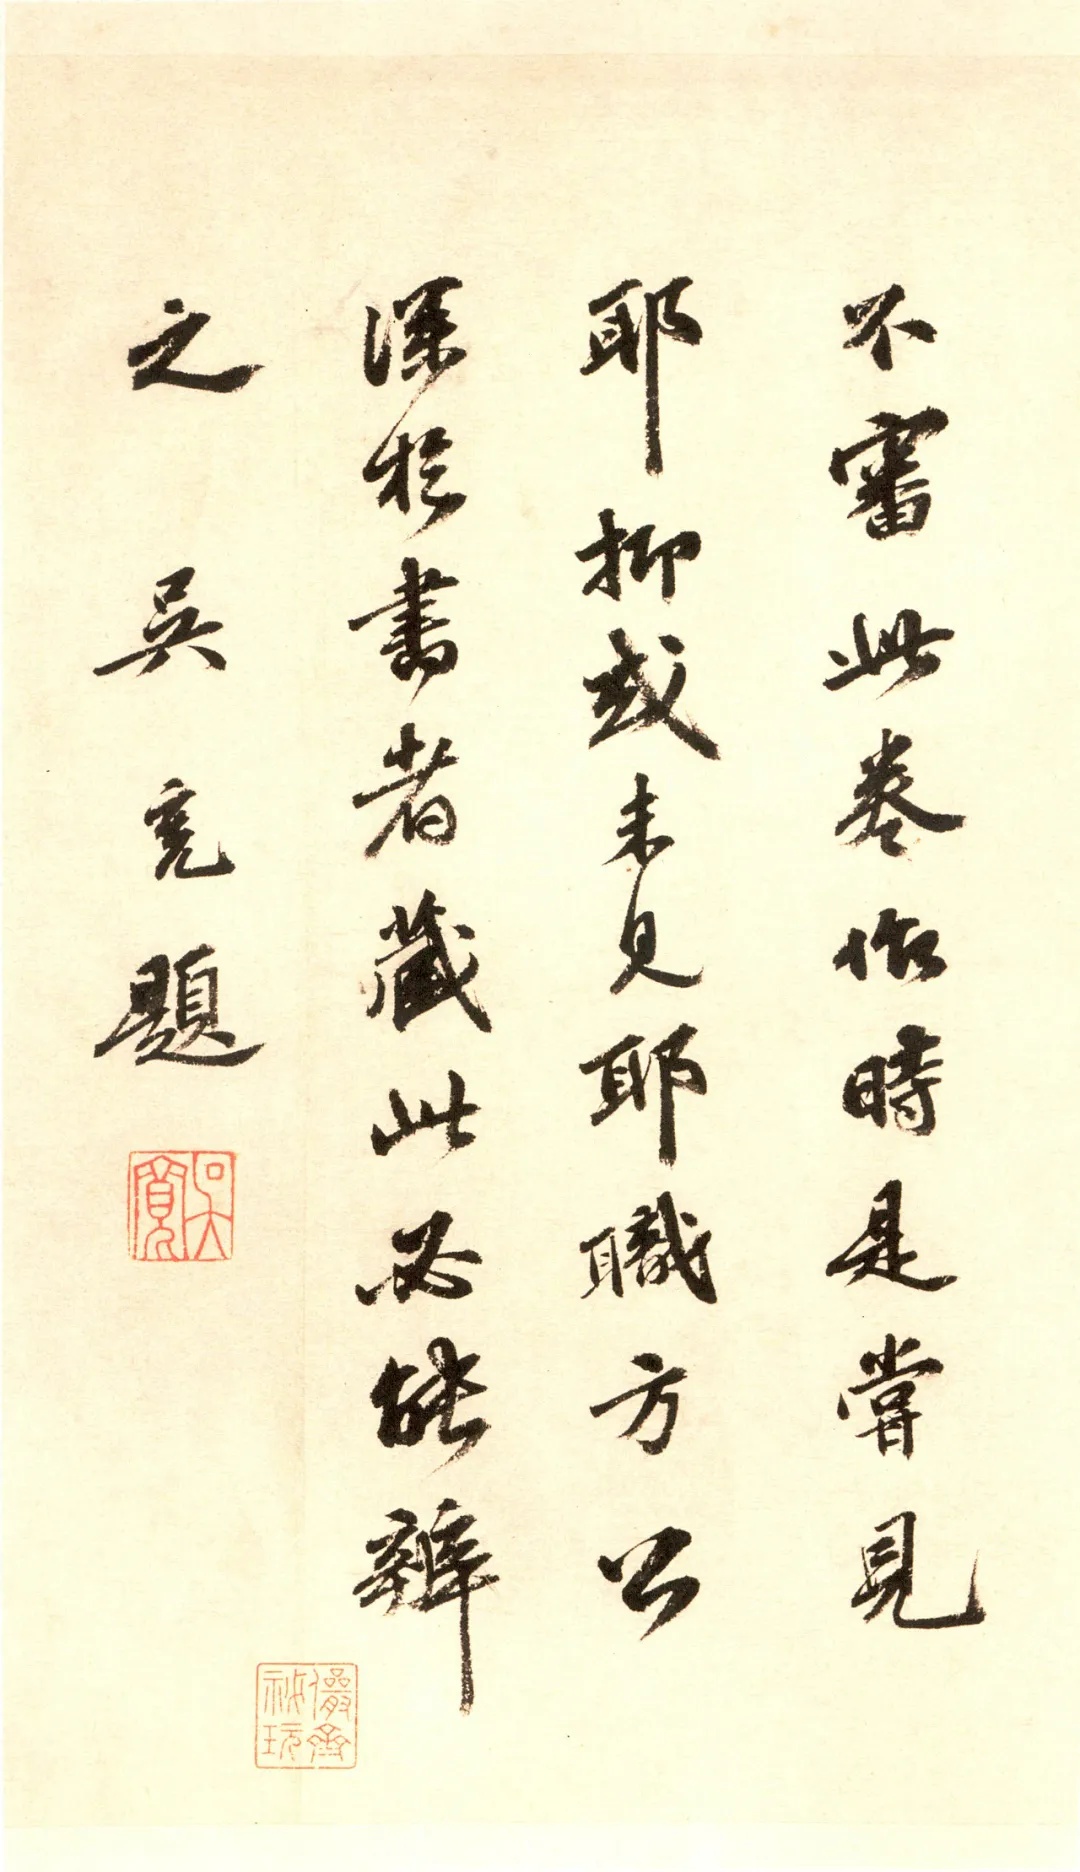 不審此卷作時是嘗見
耶抑或未見耶職方公
深於書者藏此必能辨
之 吳寬題
吳寬
儼齋秘玩